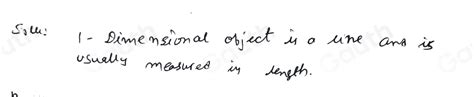 Solu: 1- Dimensional object is a line and is
usually measured in length.